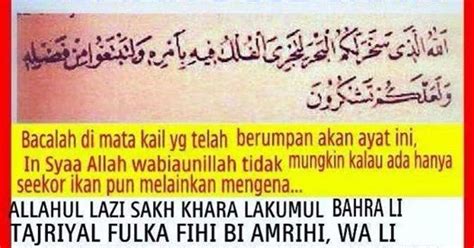 الله الذى سخر لكم البحر لتجرى الفلك فيه بأمره ولتبتغوا من فضله
ولعلكم تشكرون
Bacalah di mata kail yg telah berumpan akan ayat ini,
In Syaa Allah wabiaunillah tidak mungkin kalau ada hanya
seekor ikan pun melainkan mengena...
ALLAHUL LAZI SAKH KHARA LAKUMUL BAHRA LI
TAJRIYAL FULKA FIHI BI AMRIHI, WA LI